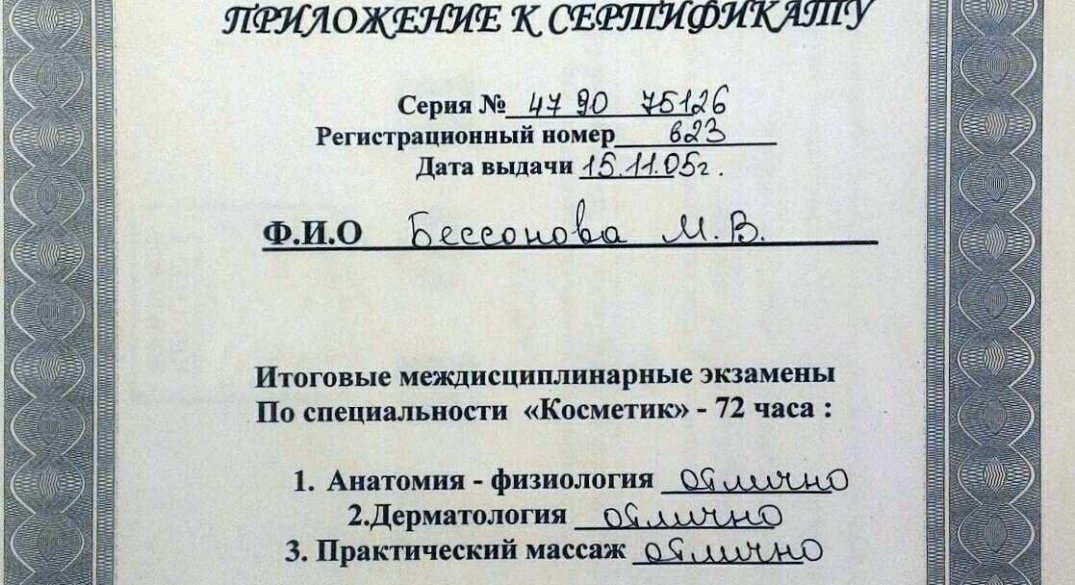 ПРИЛОЖЕНИЕ К СЕРТИФИКАТУ
Серия № 47 90 75126
Регистрационный номер 623
Дата выдачи 15.11.05г.
Ф.И.О Бессонова М.В.
Итоговые междисциплинарные экзамены
По специальности «Косметик» - 72 часа :
1. Анатомия - физиология отлично
2.Дерматология отлично
3. Практический массаж отлично